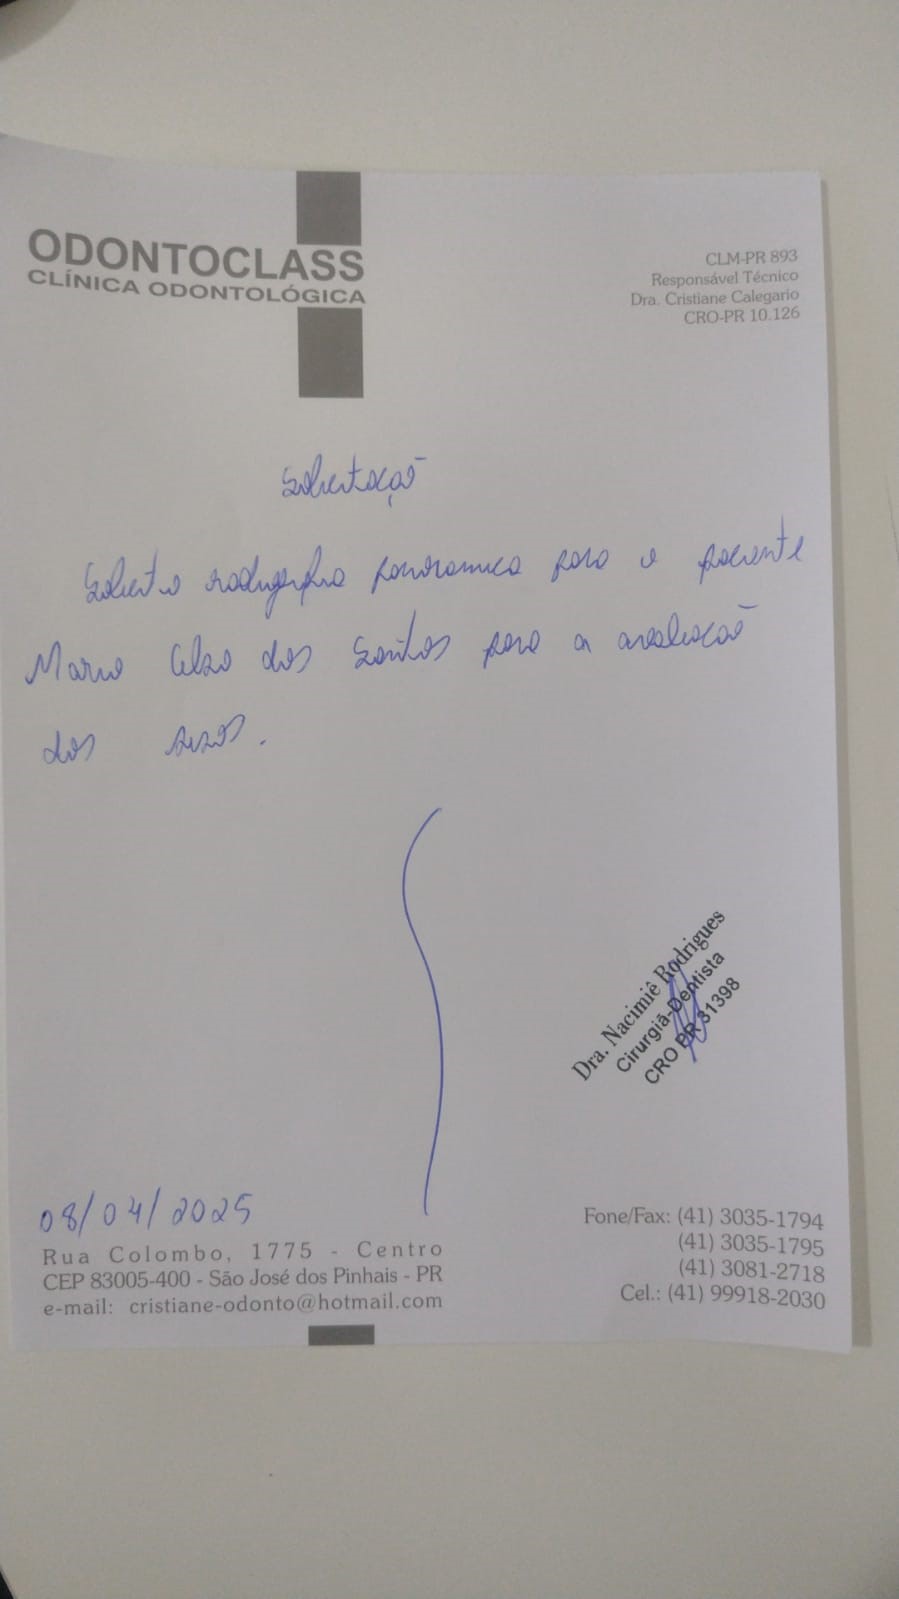 ODONTOCLASS
CLÍNICA ODONTOLÓGICA
CLM-PR 893
Responsável Técnico
Dra. Cristiane Calegario
CRO-PR 10.126
Solicitação
Solicito radiografia panoramica para o paciente
Mario Celso dos Santos para a avaliação
dos sisos.
Dra. Nacimiê Rodrigues
Cirurgiã-Dentista
CRO PR 31398
08/04/2025
Rua Colombo, 1775 - Centro
CEP 83005-400 - São José dos Pinhais - PR
e-mail: cristiane-odonto@hotmail.com
Fone/Fax: (41) 3035-1794
(41) 3035-1795
(41) 3081-2718
Cel.: (41) 99918-2030